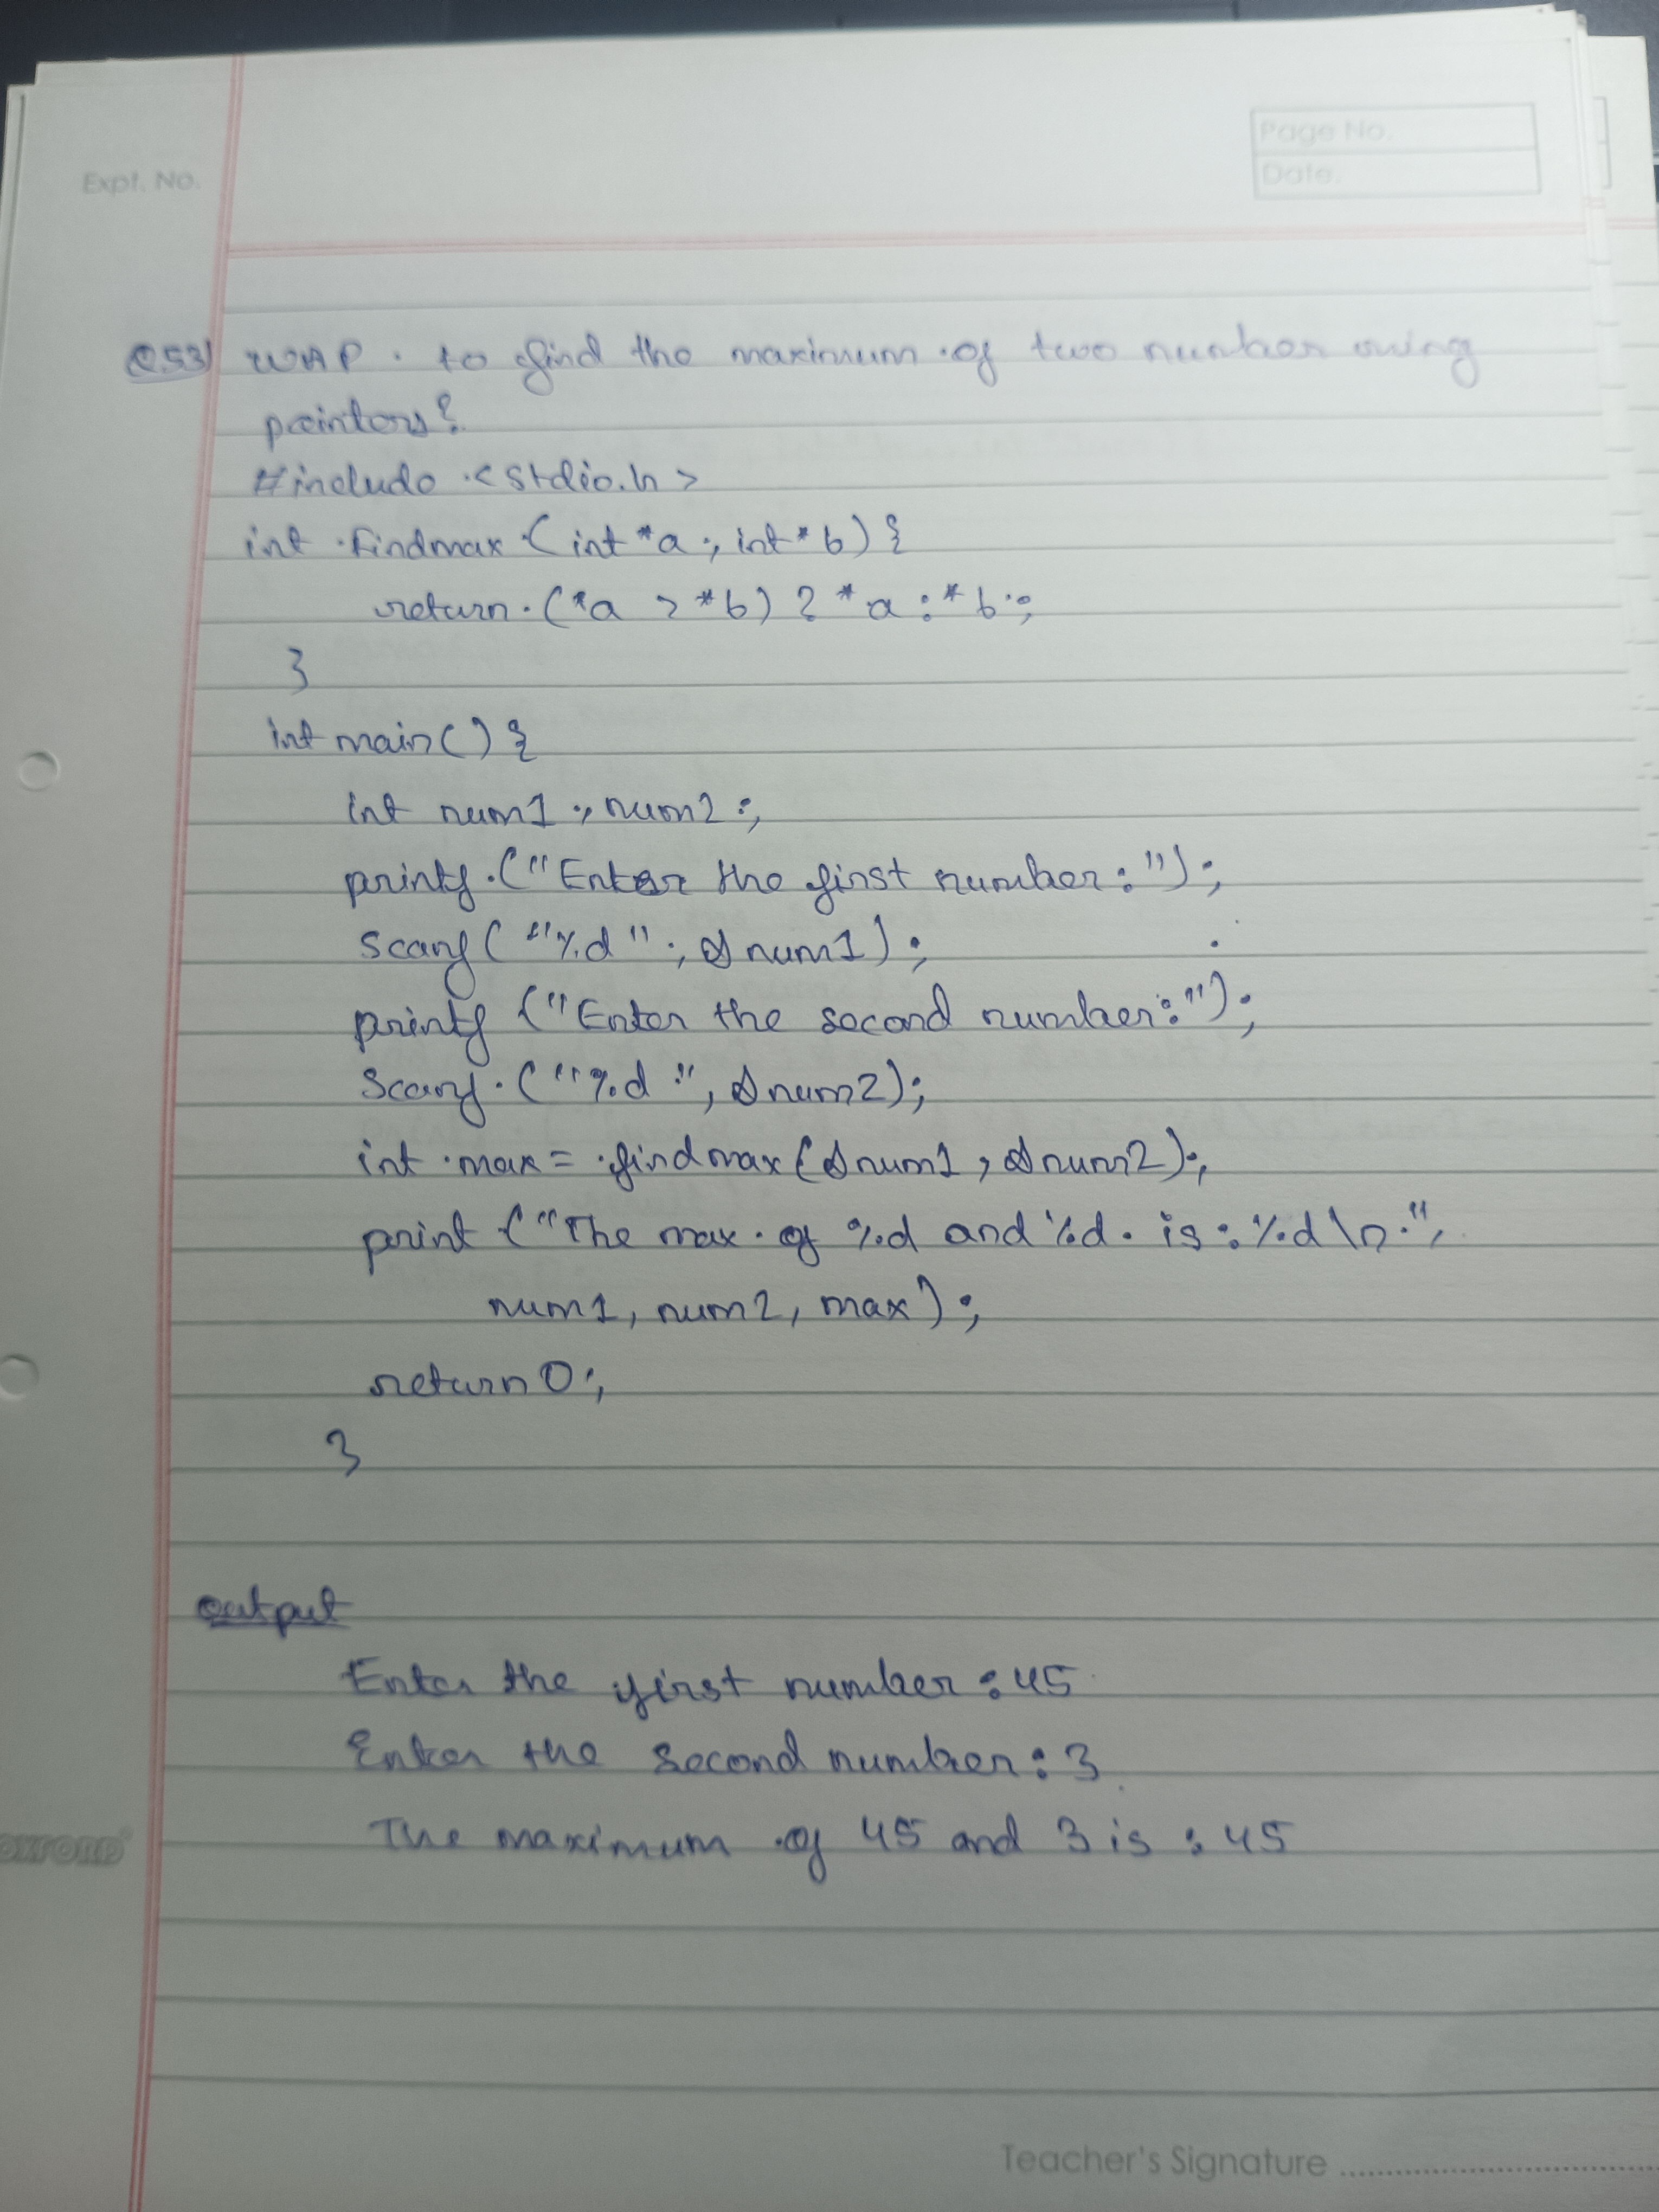 Page No.
Date.
Expt. No.
Q53) WAP. to find the maximum of two number using
pointers?
#include <stdio.h>
int findmax (int *a, int *b) {
return (*a > *b) ? *a : *b ;
}
int main() {
int num1, num2;
printf ("Enter the first number:");
scanf ("%d", &num1);
printf ("Enter the second number:");
scanf ("%d", &num2);
int max = findmax (&num1, &num2);
print ("The max. of %d and %d. is: %d \n.",
num1, num2, max);
return 0;
}
output
Enter the first number: 45
Enter the second number: 3
The maximum of 45 and 3 is : 45
OXFORD
Teacher's Signature ..............................